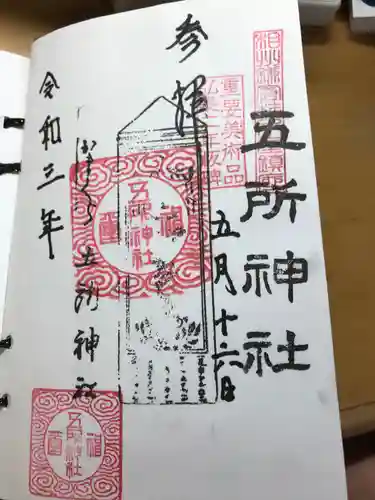 参拝
五所神社
五月十六日
令和三年
五所神社
重要美術品
弘安二年板碑
五所神社
五所神社